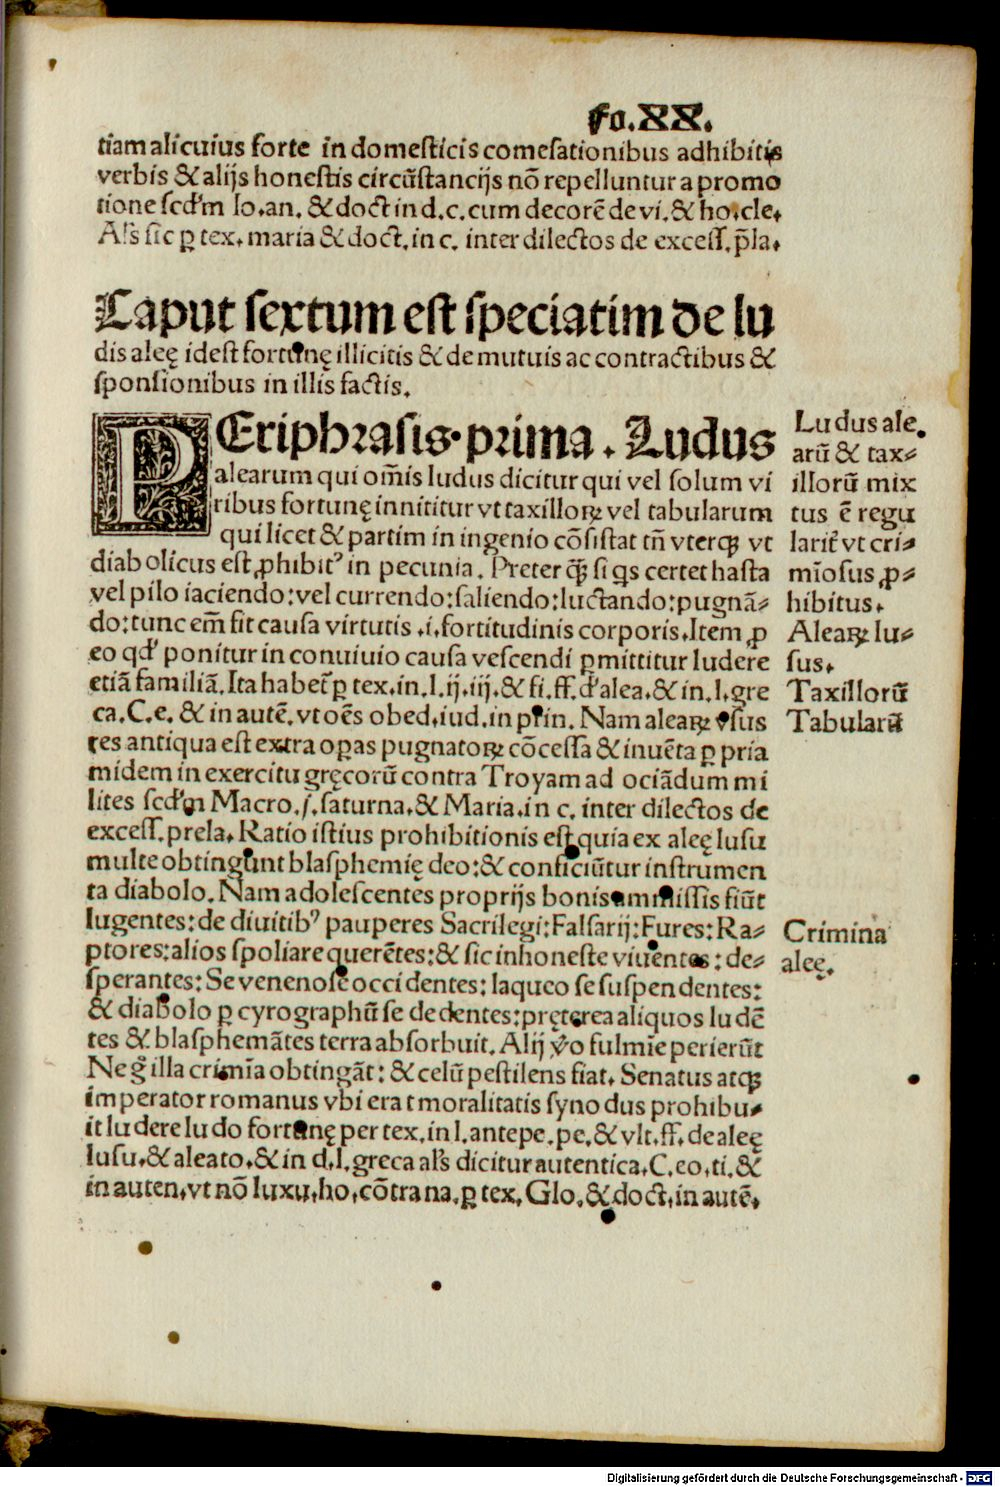 fo.XX.
tiam alicuius forte in domesticis comesationibus adhibitis
verbis & alijs honestis circũstancijs nõ repelluntur a promo
tione scd'm Io.an. & doct in d.c.cum decorẽ de vi.& ho.cle.
Al's sic ꝑ tex. maria & doct.in c. inter dilectos de excess. p̃la.
Caput sextum est speciatim de lu
dis aleę idest fortunę illicitis & de mutuis ac contractibus &
sponsionibus in illis factis.
PEriphrasis prima. Ludus
alearum qui om̃is ludus dicitur qui vel solum vi
ribus fortunę innititur vt taxilloꝝ vel tabularum
qui licet & partim in ingenio cõsistat tñ vterqꝫ vt
diabolicus est ꝓhibitꝰ in pecunia. Preter qꝫ̃ si q̃s certet hasta
vel pilo iaciendo: vel currendo: saliendo: luctando: pugnã⸗
do: tunc em̃ fit causa virtutis .i. fortitudinis corporis. Item ꝓ
eo qd' ponitur in conuiuio causa vescendi ꝑmittitur ludere
etiã familiã. Ita habet᷑ ꝑ tex. in.l.ij.iij.& fi.ff.d' alea.& in.l.gre
ca.C.e. & in autẽ. vt oẽs obed.iud.in prin. Nam aleaꝝ vsus
res antiqua est extra oꝑas pugnatoꝝ cõcessa & inuẽta ꝑ pria
midem in exercitu gręcorũ contra Troyam ad ociãdum mi
lites scd'm Macro.j.saturna.& Maria.in c. inter dilectos de
excess. prela. Ratio istius prohibitionis est quia ex aleę lusu
multe obtingunt blasphemię deo: & conficiũtur instrumen
ta diabolo. Nam adolescentes proprijs bonis ammissis fiũt
lugentes: de diuitibꝰ pauperes Sacrilegi: Falsarij: Fures: Ra⸗
ptores: alios spoliare querẽtes: & sic inhoneste viuentes: de⸗
sperantes: Se venenose occidentes: laqueo se suspendentes:
& diabolo ꝑ cyrographũ se dedentes: pręterea aliquos ludẽ
tes & blasphemãtes terra absorbuit. Alij ṽo fulmĩe perierũt
Neg̃ illa crimĩa obtingãt: & celũ pestilens fiat. Senatus atqꝫ
imperator romanus vbi erat moralitatis synodus prohibu⸗
it ludere ludo fortunę per tex.in l.antepe.pe.& vlt.ff.de aleę
lusu.& aleato.& in d.l.greca al's dicitur autentica.C.eo.ti.&
in auten.vt nõ luxu.ho.cõtra na.ꝑ tex. Glo.& doct.in autẽ.
Ludus ale
arũ & tax⸗
illorũ mix
tus ẽ regu
larit᷑ vt cri⸗
mĩosus ꝓ⸗
hibitus.
Aleaꝝ lu⸗
sus.
Taxillorũ
Tabularũ
Crimina
aleę.
Digitalisierung gefördert durch die Deutsche Forschungsgemeinschaft - DFG